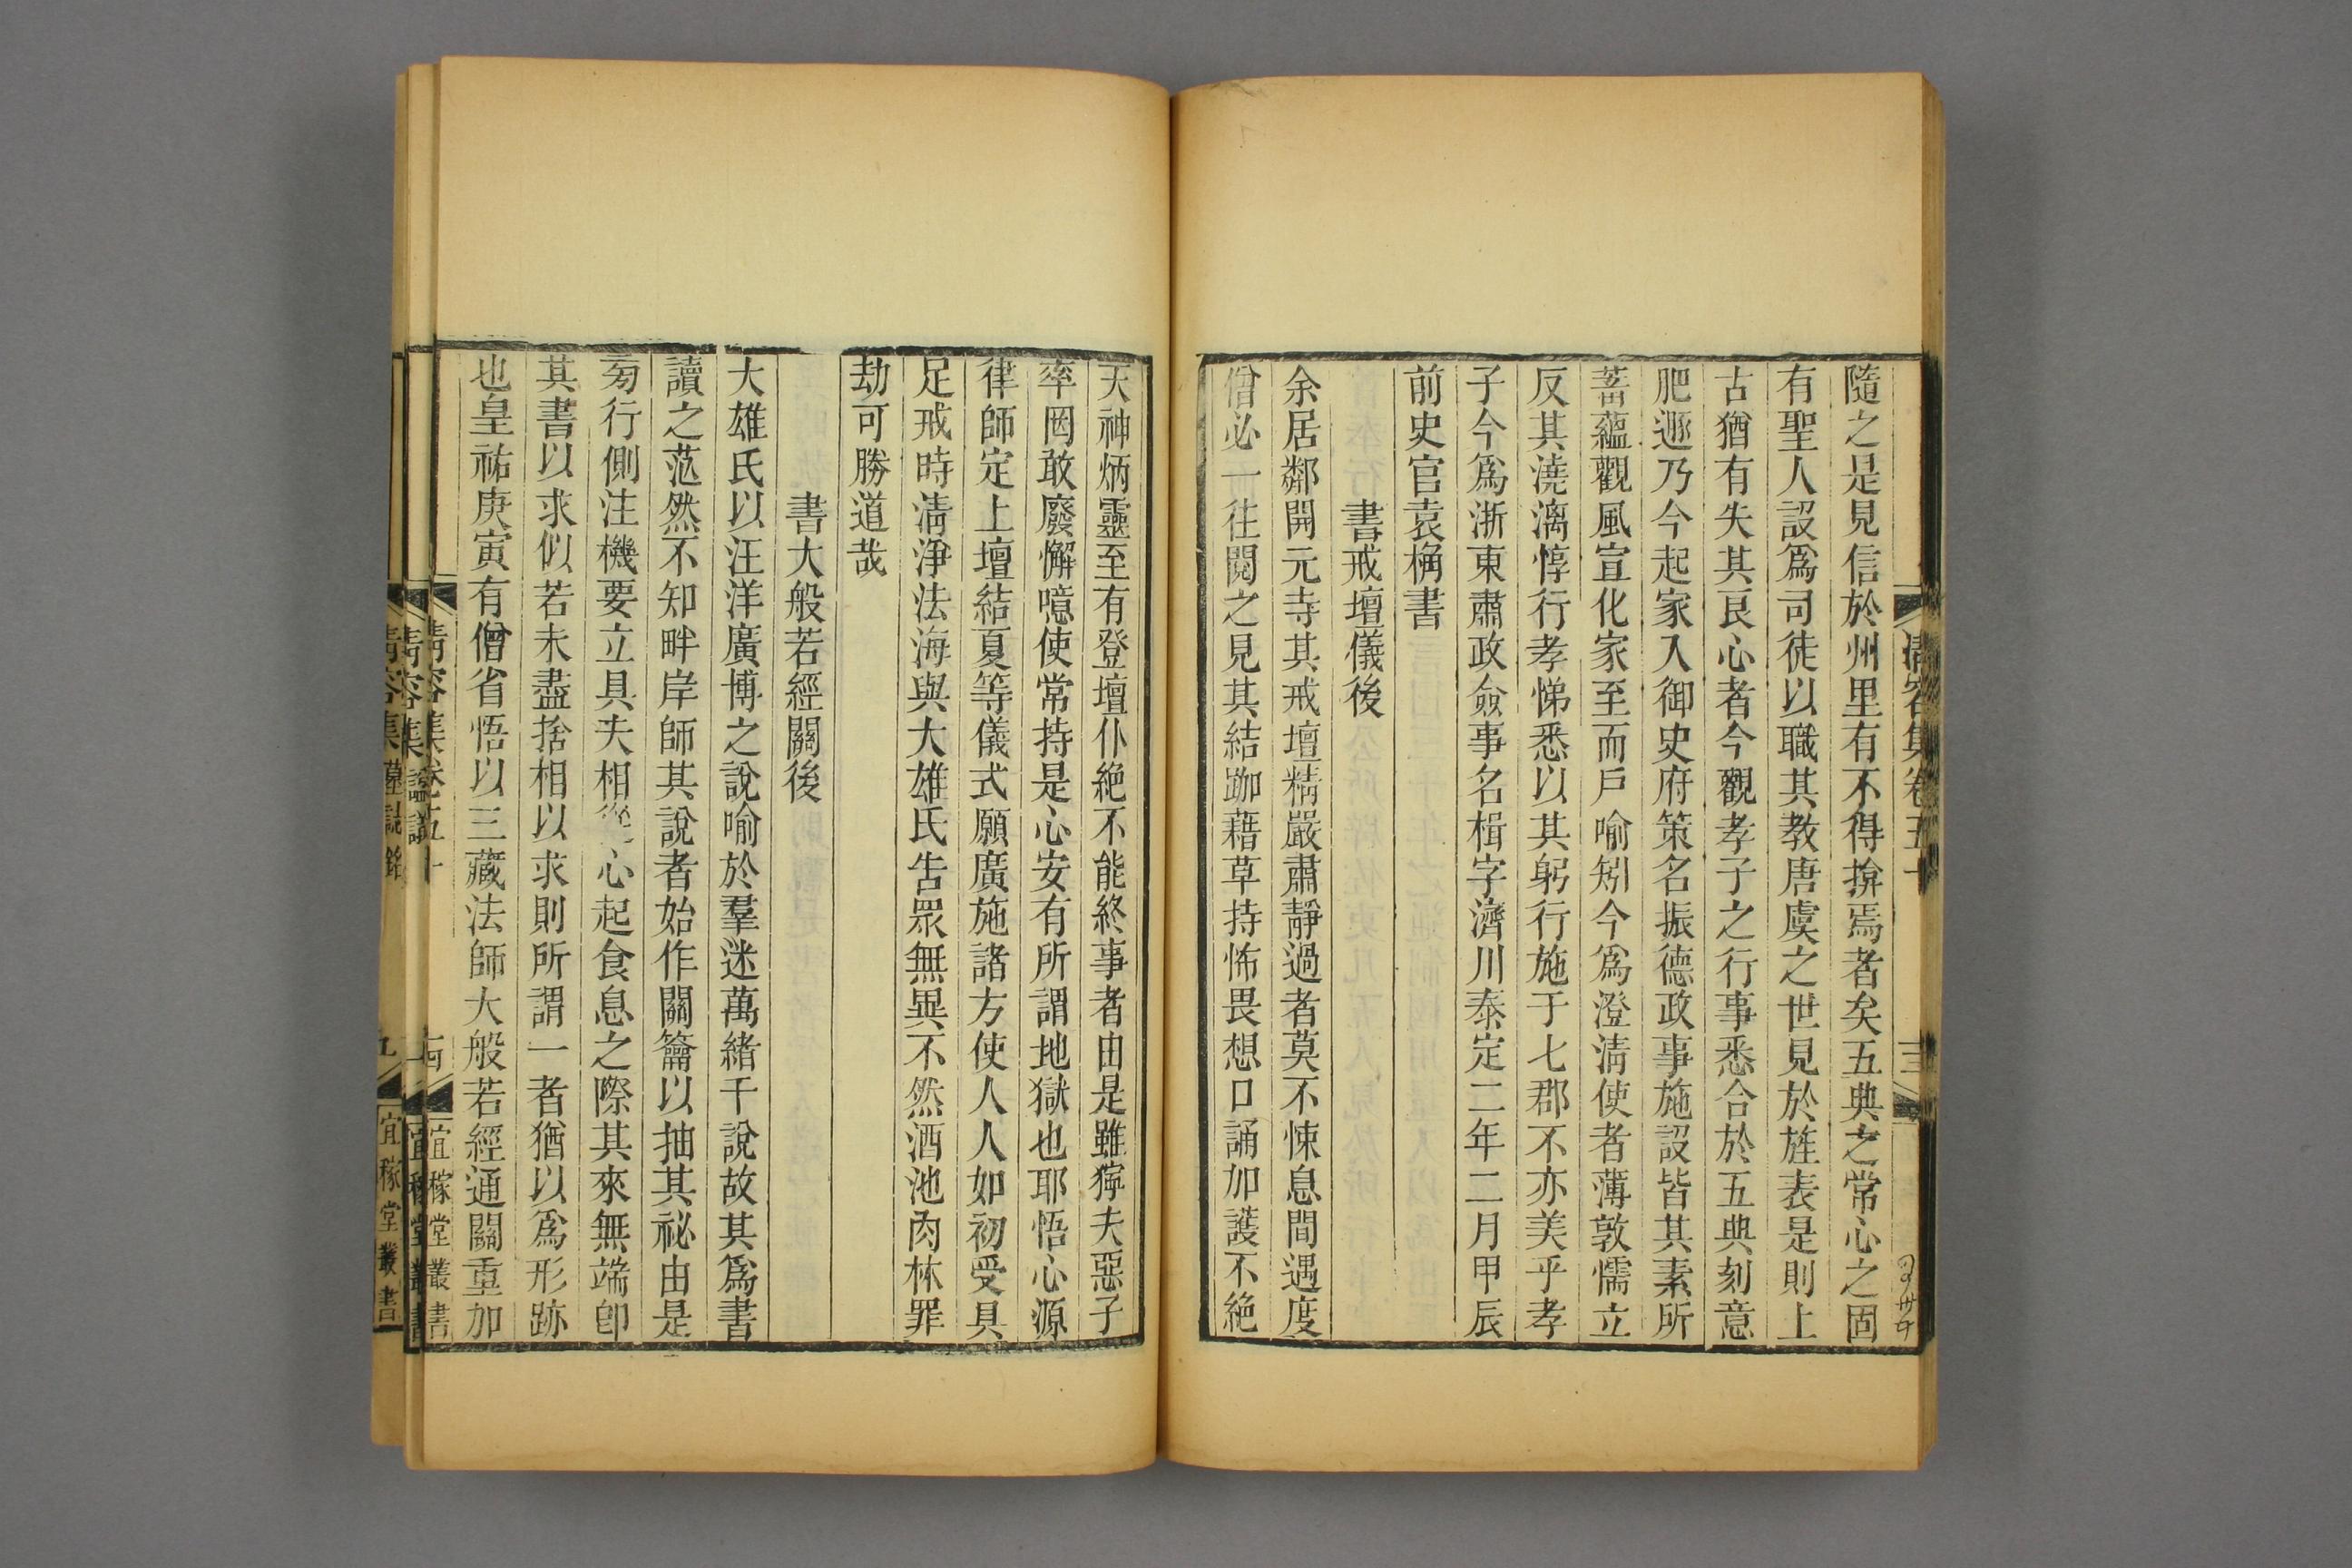 隨之是見信於州里有不得揜焉者矣五典之常心之固
有聖人設爲司徒以職其教唐虞之世見於旌表是則上
古猶有失其良心者今觀孝子之行事悉合於五典刻意
肥遯乃今起家入御史府策名振德政事施設皆其素所
蓄蘊觀風宣化家至而戶喻矧今爲澄淸使者薄敦懦立
反其澆漓惇行孝悌悉以其躬行施于七郡不亦美乎孝
子今爲浙東肅政僉事名楫字濟川泰定二年二月甲辰
前史官袁桷書
書戒壇儀後
余居鄰開元寺其戒壇精嚴肅靜過者莫不悚息間遇度
僧必一往閱之見其結跏藉草持怖畏想口誦加護不絶
天神炳靈至有登壇仆絶不能終事者由是雖獰夫惡子
率罔敢廢懈噫使常持是心安有所謂地獄也耶悟心源
律師定上壇結夏等儀式願廣施諸方使人人如初受具
足戒時淸淨法海與大雄氏告眾無異不然酒池肉林罪
劫可勝道哉
書大般若經關後
大雄氏以汪洋廣博之說喻於羣迷萬緒千說故其爲書
讀之茫然不知畔岸師其說者始作關籥以抽其祕由是
匇行側注機要立具夫相心起食息之際其來無端卽
其書以求似若未盡捨相以求則所謂一者猶以爲形跡
也皇祐庚寅有僧省悟以三藏法師大般若經通關重加
清容集卷五十
三
清容集卷五十
宜稼堂叢書
清容集
謚議
宜稼堂叢書
清容集
墓誌銘
九
宜稼堂叢書